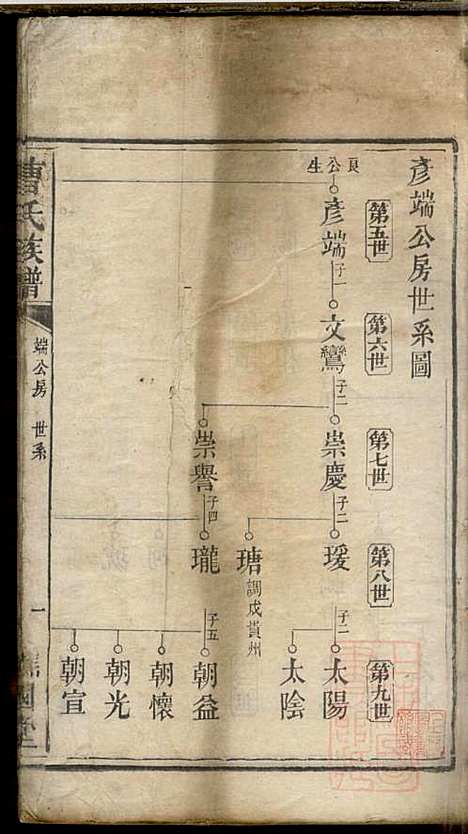 彥端公房世系圖
第五世
第六世
第七世
第八世
第九世
良公生
彥端
子一
文鸞
子二
崇慶
子二
瑗
子二
太陽
太陰
瑭
調戍貴州
崇譽
子四
瓏
子五
朝益
朝懷
朝光
朝宣
曹氏族譜
端公房 世系
一